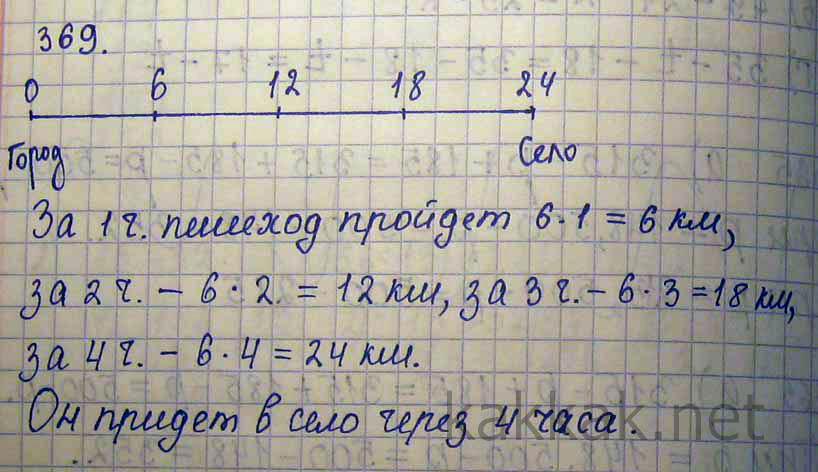 369.
0 6 12 18 24
Город Село
За 1 ч. пешеход пройдет 6·1 = 6 км,
за 2 ч. – 6·2. = 12 км, за 3 ч. – 6·3 = 18 км,
за 4 ч. – 6·4 = 24 км.
Он придет в село через 4 часа.
kakkak.net